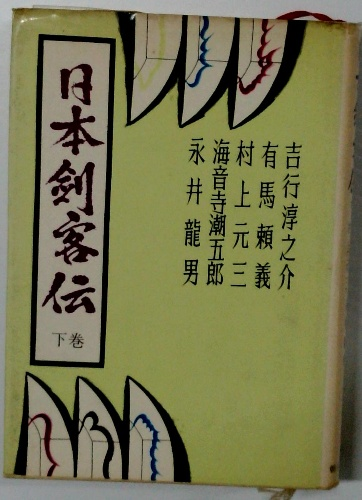 日本剣客伝
下巻
吉行淳之介
有馬頼義
村上元三
海音寺潮五郎
永井龍男